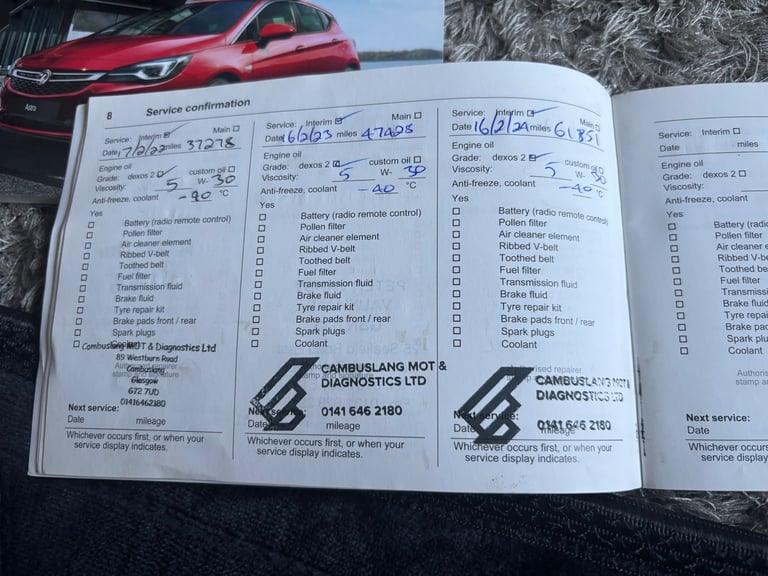 Astra
8 Service confirmation
Service: Interim ☑ Main ☐
Date 17/2/22 miles 37278
Engine oil
Grade: dexos 2 ☑ custom oil ☐
Viscosity: 5 W- 30
Anti-freeze, coolant -40 °C
Yes
☐ Battery (radio remote control)
☐ Pollen filter
☐ Air cleaner element
☐ Ribbed V-belt
☐ Toothed belt
☐ Fuel filter
☐ Transmission fluid
☐ Brake fluid
☐ Tyre repair kit
☐ Brake pads front / rear
☐ Spark plugs
☐ Coolant
Cambuslang MOT & Diagnostics Ltd
89 Westburn Road
Cambuslang
Glasgow
G72 7UD
01416462180
Authorised repairer
stamp and signature
Next service:
Date mileage
Whichever occurs first, or when your
service display indicates.
Service: Interim ☑ Main ☐
Date 16/2/23 miles 47428
Engine oil
Grade: dexos 2 ☑ custom oil ☐
Viscosity: 5 W- 30
Anti-freeze, coolant -40 °C
Yes
☐ Battery (radio remote control)
☐ Pollen filter
☐ Air cleaner element
☐ Ribbed V-belt
☐ Toothed belt
☐ Fuel filter
☐ Transmission fluid
☐ Brake fluid
☐ Tyre repair kit
☐ Brake pads front / rear
☐ Spark plugs
☐ Coolant
CAMBUSLANG MOT &
DIAGNOSTICS LTD
0141 646 2180
Next service:
Date mileage
Whichever occurs first, or when your
service display indicates.
Service: Interim ☑ Main ☐
Date 16/2/24 miles 61351
Engine oil
Grade: dexos 2 ☑ custom oil ☐
Viscosity: 5 W- 30
Anti-freeze, coolant -40 °C
Yes
☐ Battery (radio remote control)
☐ Pollen filter
☐ Air cleaner element
☐ Ribbed V-belt
☐ Toothed belt
☐ Fuel filter
☐ Transmission fluid
☐ Brake fluid
☐ Tyre repair kit
☐ Brake pads front / rear
☐ Spark plugs
☐ Coolant
CAMBUSLANG MOT &
DIAGNOSTICS LTD
0141 646 2180
Next service:
Date mileage
Whichever occurs first, or when your
service display indicates.
Service: Interim ☐
Date miles
Engine oil
Grade: dexos 2 ☐
Viscosity:
Anti-freeze, coolant
Yes
☐ Battery (radio
☐ Pollen filter
☐ Air cleaner e
☐ Ribbed V-be
☐ Toothed be
☐ Fuel filter
☐ Transmissi
☐ Brake fluid
☐ Tyre repair
☐ Brake pad
☐ Spark plu
☐ Coolant
Authoris
stamp a
Next service:
Date
Whichever occurs
service display